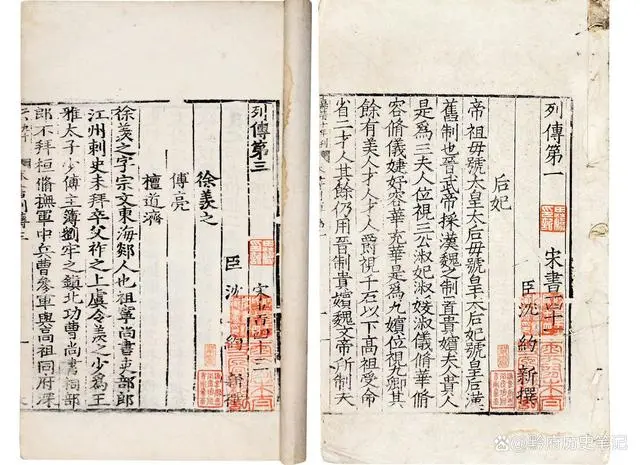 列傳第一 宋書四十一
臣沈約新撰
后妃
帝祖母號太皇太后母號皇太后妃號皇后漢
舊制也晉武帝採漢魏之制置貴嬪夫人貴人
是爲三夫人位視三公淑妃淑媛淑儀脩華脩
容脩儀婕妤容華充華是爲九嬪位視九卿其
餘有美人才人才人爵視千石以下高祖受命
省二才人其餘仍用晉制貴嬪魏文帝所制夫
列傳第三 宋書四十三
臣沈約新撰
徐羨之
傅亮
檀道濟
徐羨之字宗文東海郯人也祖寧尚書吏部郎
江州刺史未拜卒父祚之上虞令羨之少爲王
雅太子少傅主簿劉牢之鎮北功曹尚書祠部
郎不拜桓脩撫軍中兵曹參軍與高祖同府深
@黔府历史笔记